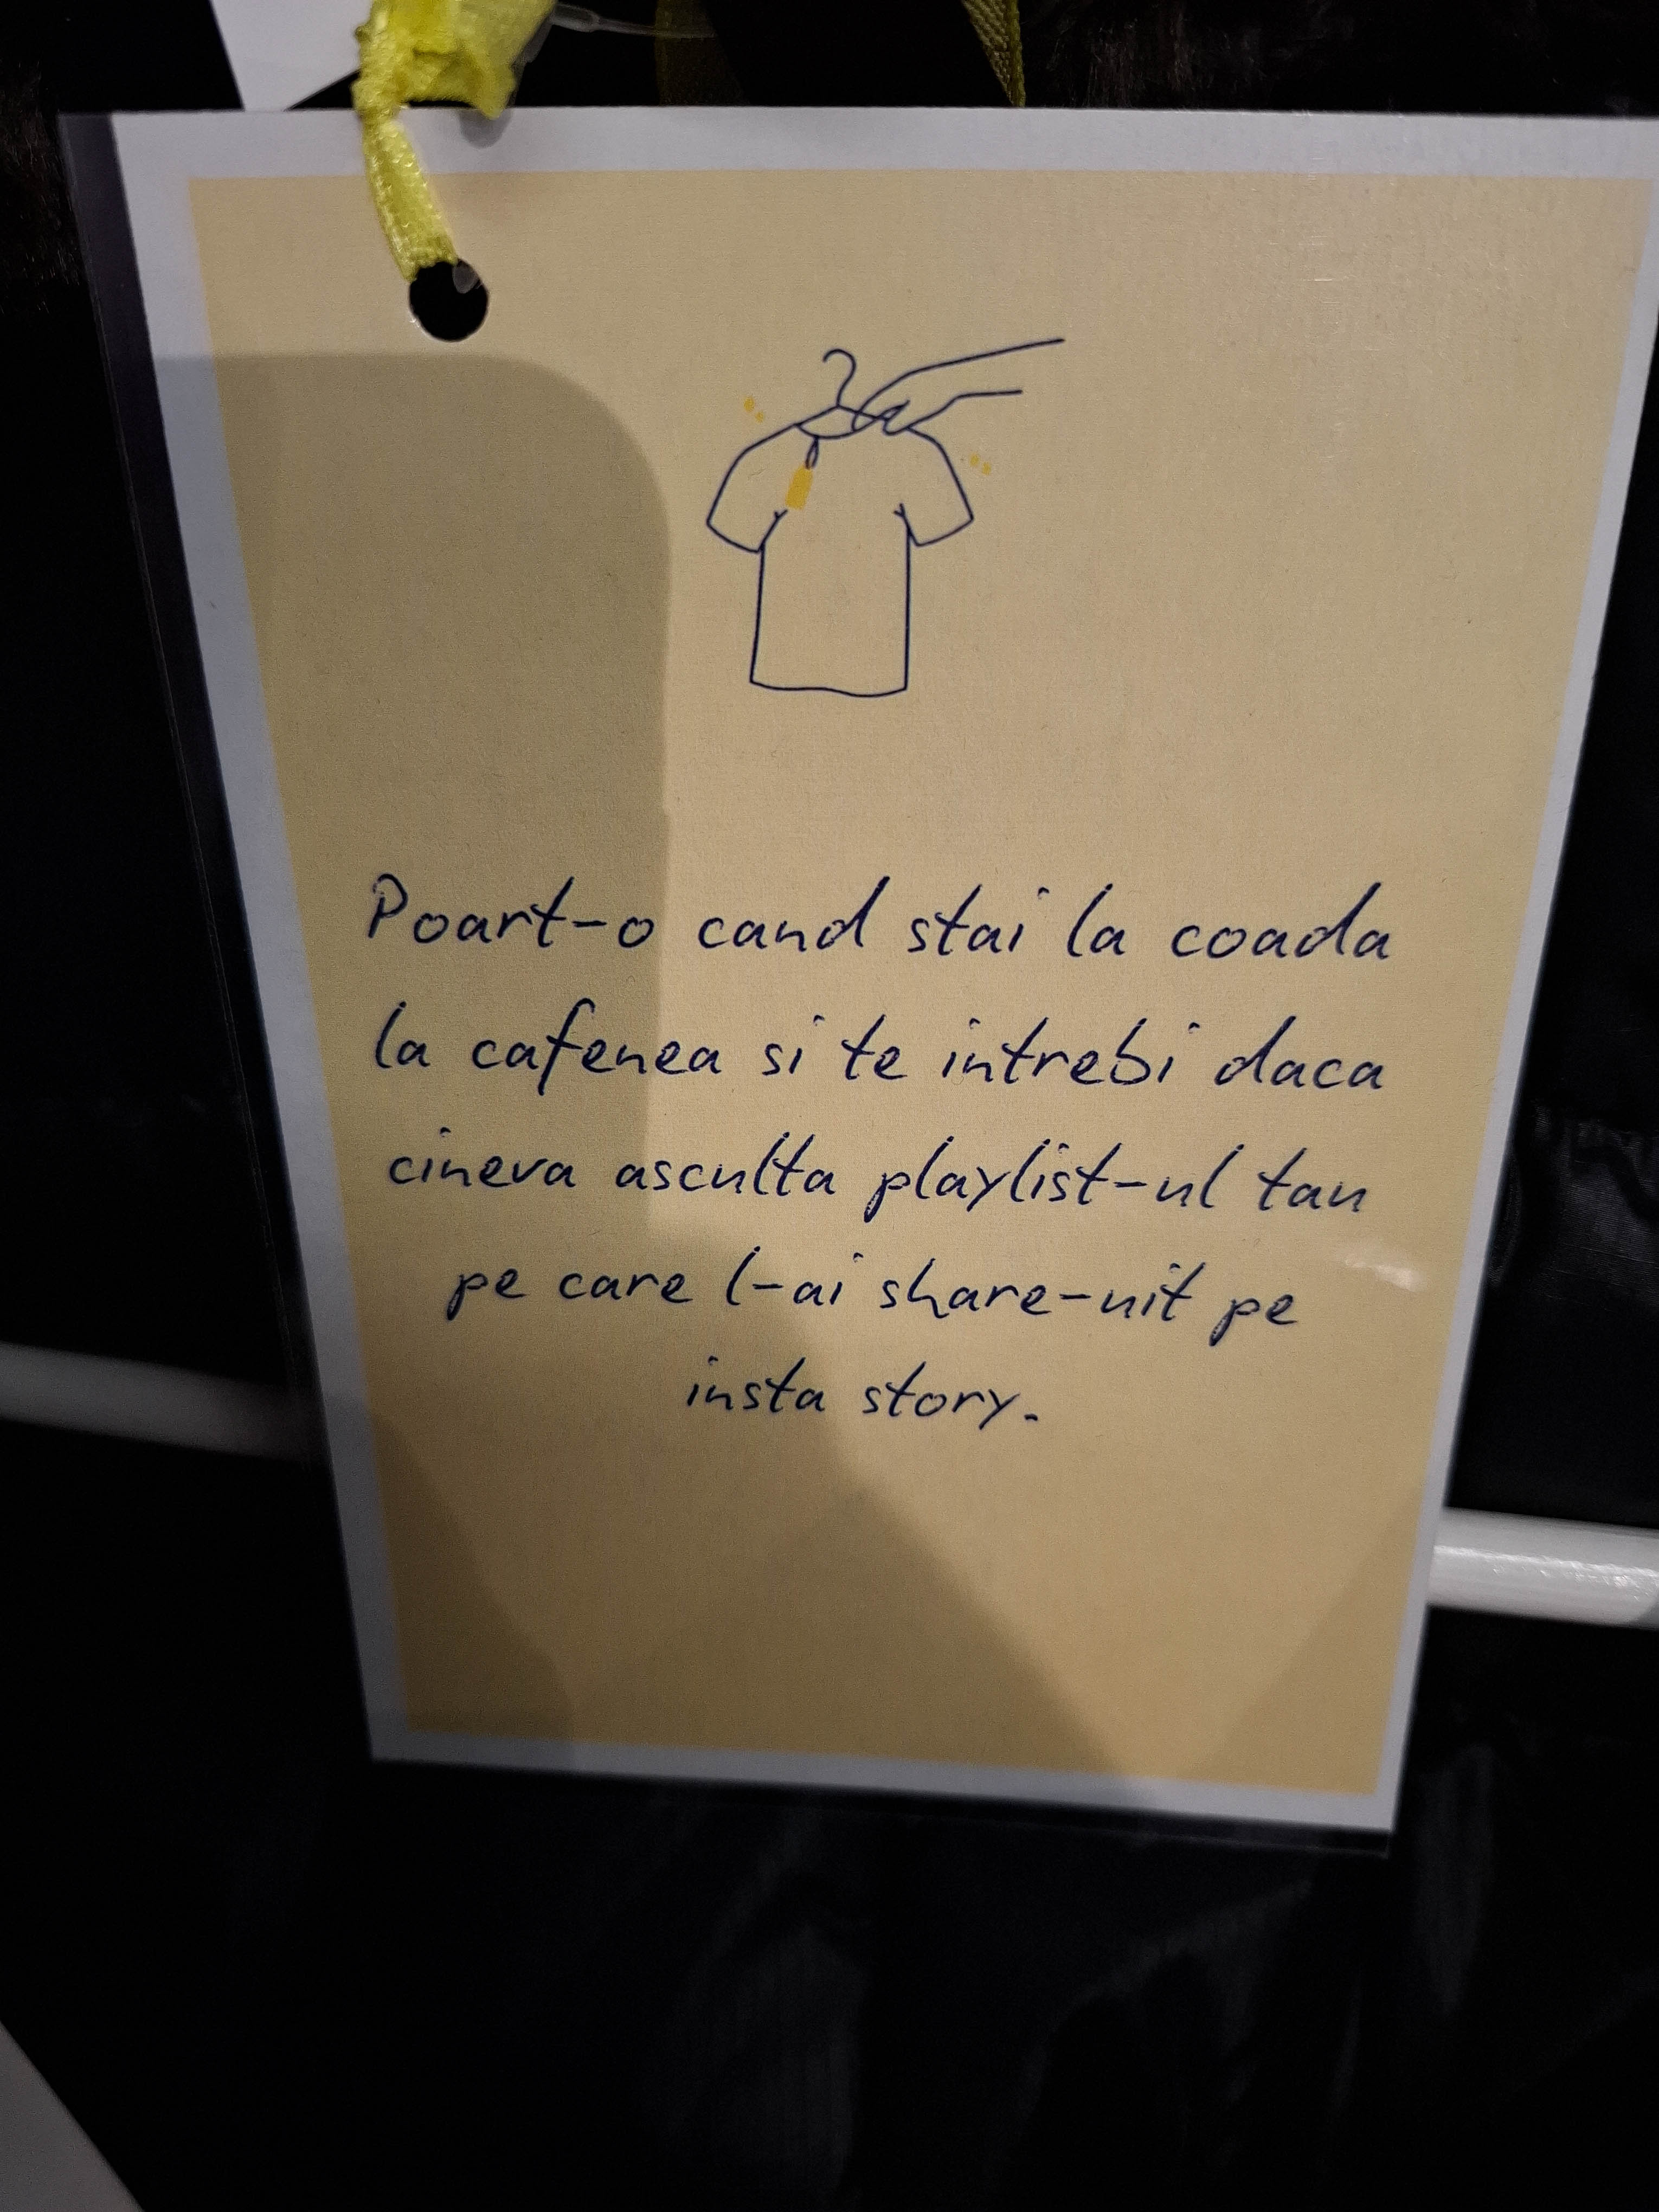 Poart-o cand stai la coada
la cafenea si te intrebi daca
cineva asculta playlist-ul tau
pe care l-ai share-uit pe
insta story.